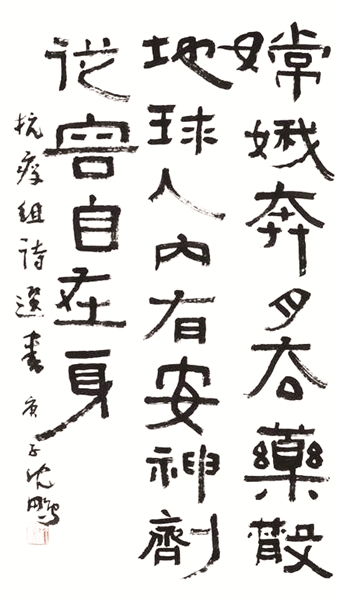 嫦娥奔月吞藥散
地球人内有安神劑
從容自在身
抗疫組詩選書 庚子沈鵬